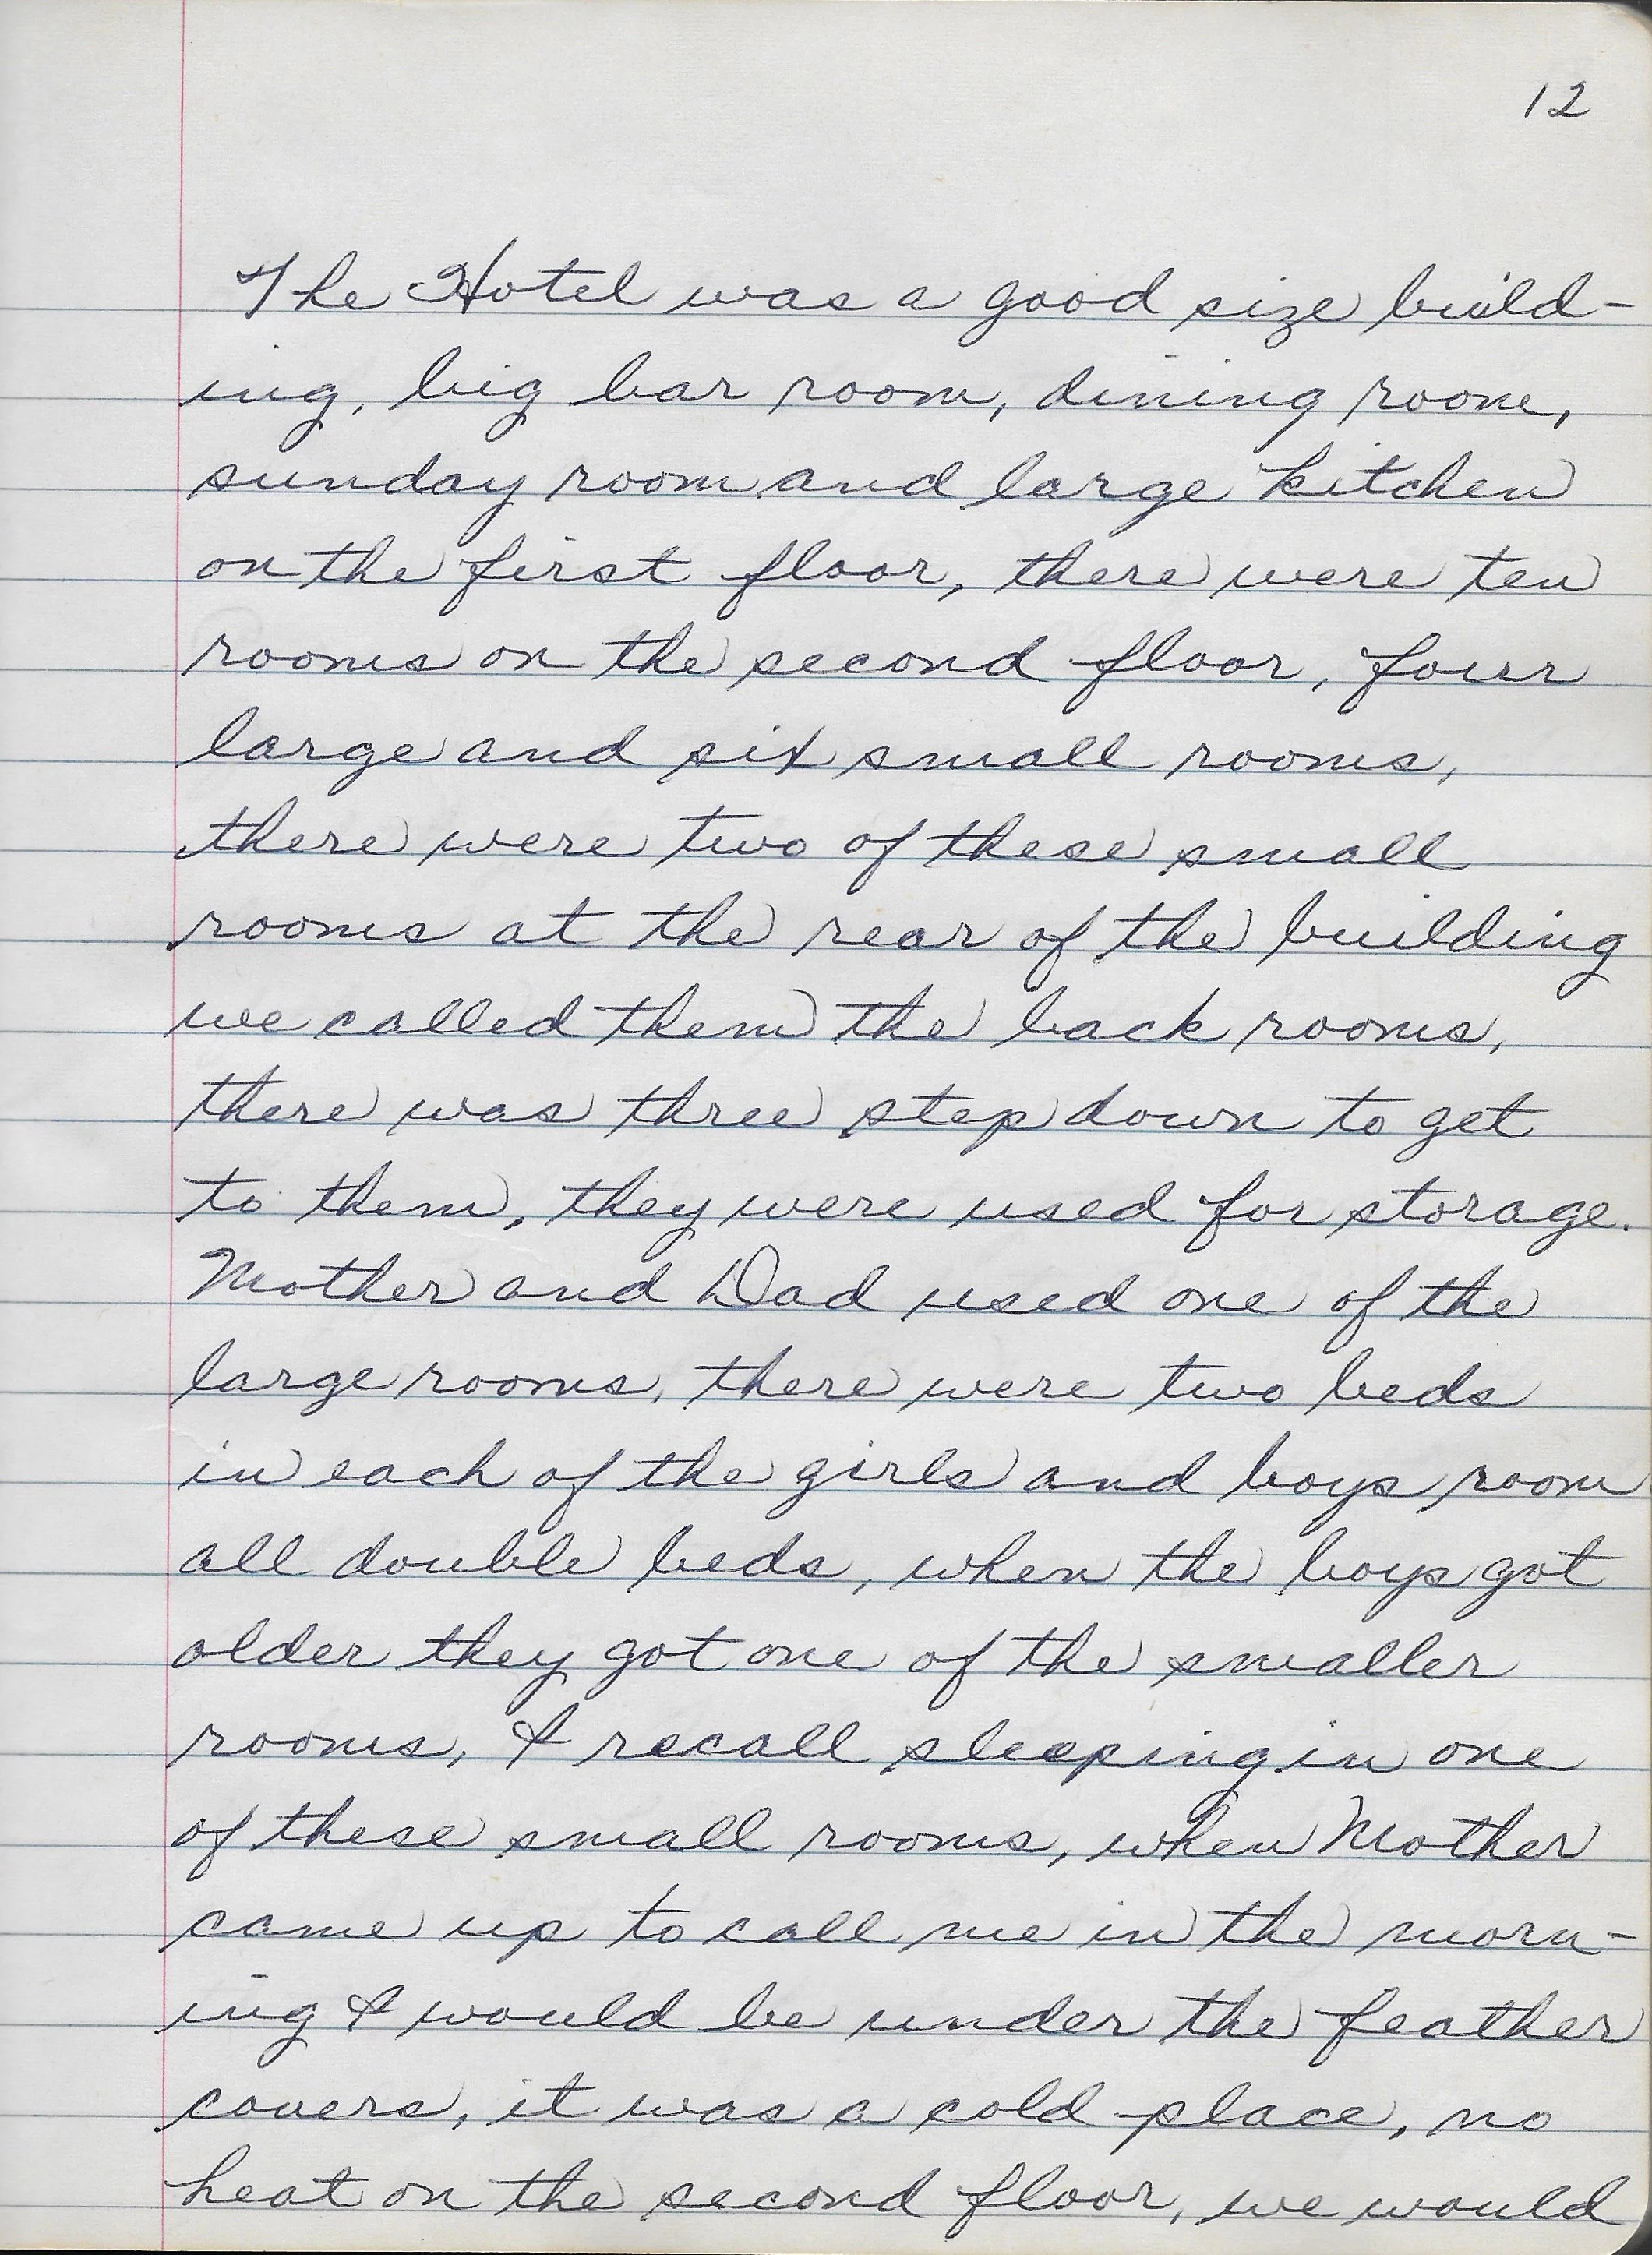 12
The Hotel was a good size build-
ing, big bar room, dining room,
sunday room and large kitchen
on the first floor, there were ten
rooms on the second floor, four
large and six small rooms,
there were two of these small
rooms at the rear of the building
we called them the back rooms,
there was three step down to get
to them, they were used for storage.
Mother and Dad used one of the
large rooms, there were two beds
in each of the girls and boys room
all double beds, when the boys got
older they got one of the smaller
rooms, I recall sleeping in one
of these small rooms, when Mother
came up to call me in the morn-
ing I would be under the feather
covers, it was a cold place, no
heat on the second floor, we would